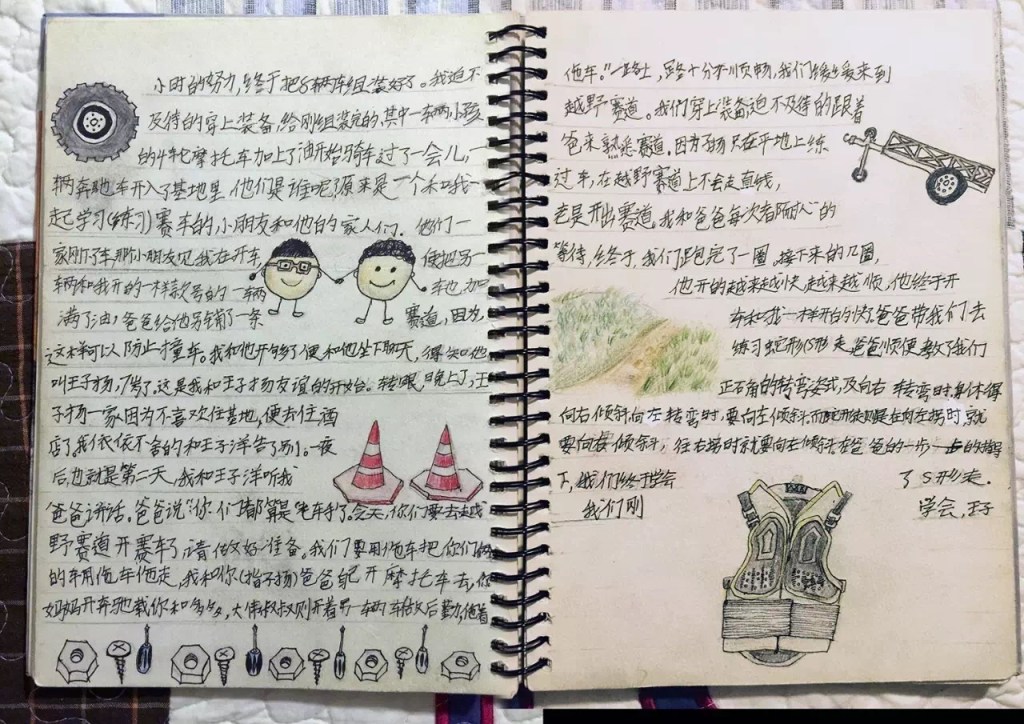 小时的努力,终于把8辆车组装好了。我迫不
及待的穿上装备,给刚组装完的,其中一辆小孩
的4轮摩托车加上了油开始骑车过了一会儿,一
辆奔驰车开入了基地里,他们是谁呢?原来是一个和我一
起学习(练习)赛车的小朋友和他的家人们。他们一
家刚下车,那小朋友见我在开车,便把另一
辆和我开的一样款号的一辆车也加
满了油,爸爸给他另铺了一条赛道,因为,
这样可以防止撞车。我和他开够了便和他坐下聊天,得知他
叫王子扬,7岁了,这是我和王子扬友谊的开始。转眼,晚上了,王
子扬一家因为不喜欢住基地,便去住酒
店了,我依依不舍的和王子洋告了别。一夜
后,也就是第二天,我和王子洋听我
爸爸讲话。爸爸说:“你们都算是老车手了,今天,你们要去越
野赛道开赛车了,请做好准备。我们要用拖车把你们
的车用拖车拖走,我和你(指子扬)爸爸开摩托车去,你
妈妈开奔驰载你和多多,大伟叔叔则开着另一辆车做后勤,拖着
拖车。”一路上,路十分不顺畅,我们缓缓来到
越野赛道。我们穿上装备迫不及待的跟着
爸来熟悉赛道,因为子扬只在平地上练
过车,在越野赛道上不会走直线,
老是开出赛道。我和爸爸每次都耐心的
等待,终于,我们跑完了一圈,接下来的几圈,
他开的越来越快,越来越顺,他终于开
车和我一样开的快了爸爸带我们去
练习蛇形(S形)走,爸爸顺便教了我们
正确的转弯姿式,及向右转弯时,身体得
向右倾斜向左转弯时,要向左倾斜。而是在向左拐时,就
要向右倾斜,往右拐时就要向左倾斜在爸爸的一步一步的指导
下,我们终于学会了S形走。
我们刚学会,王子